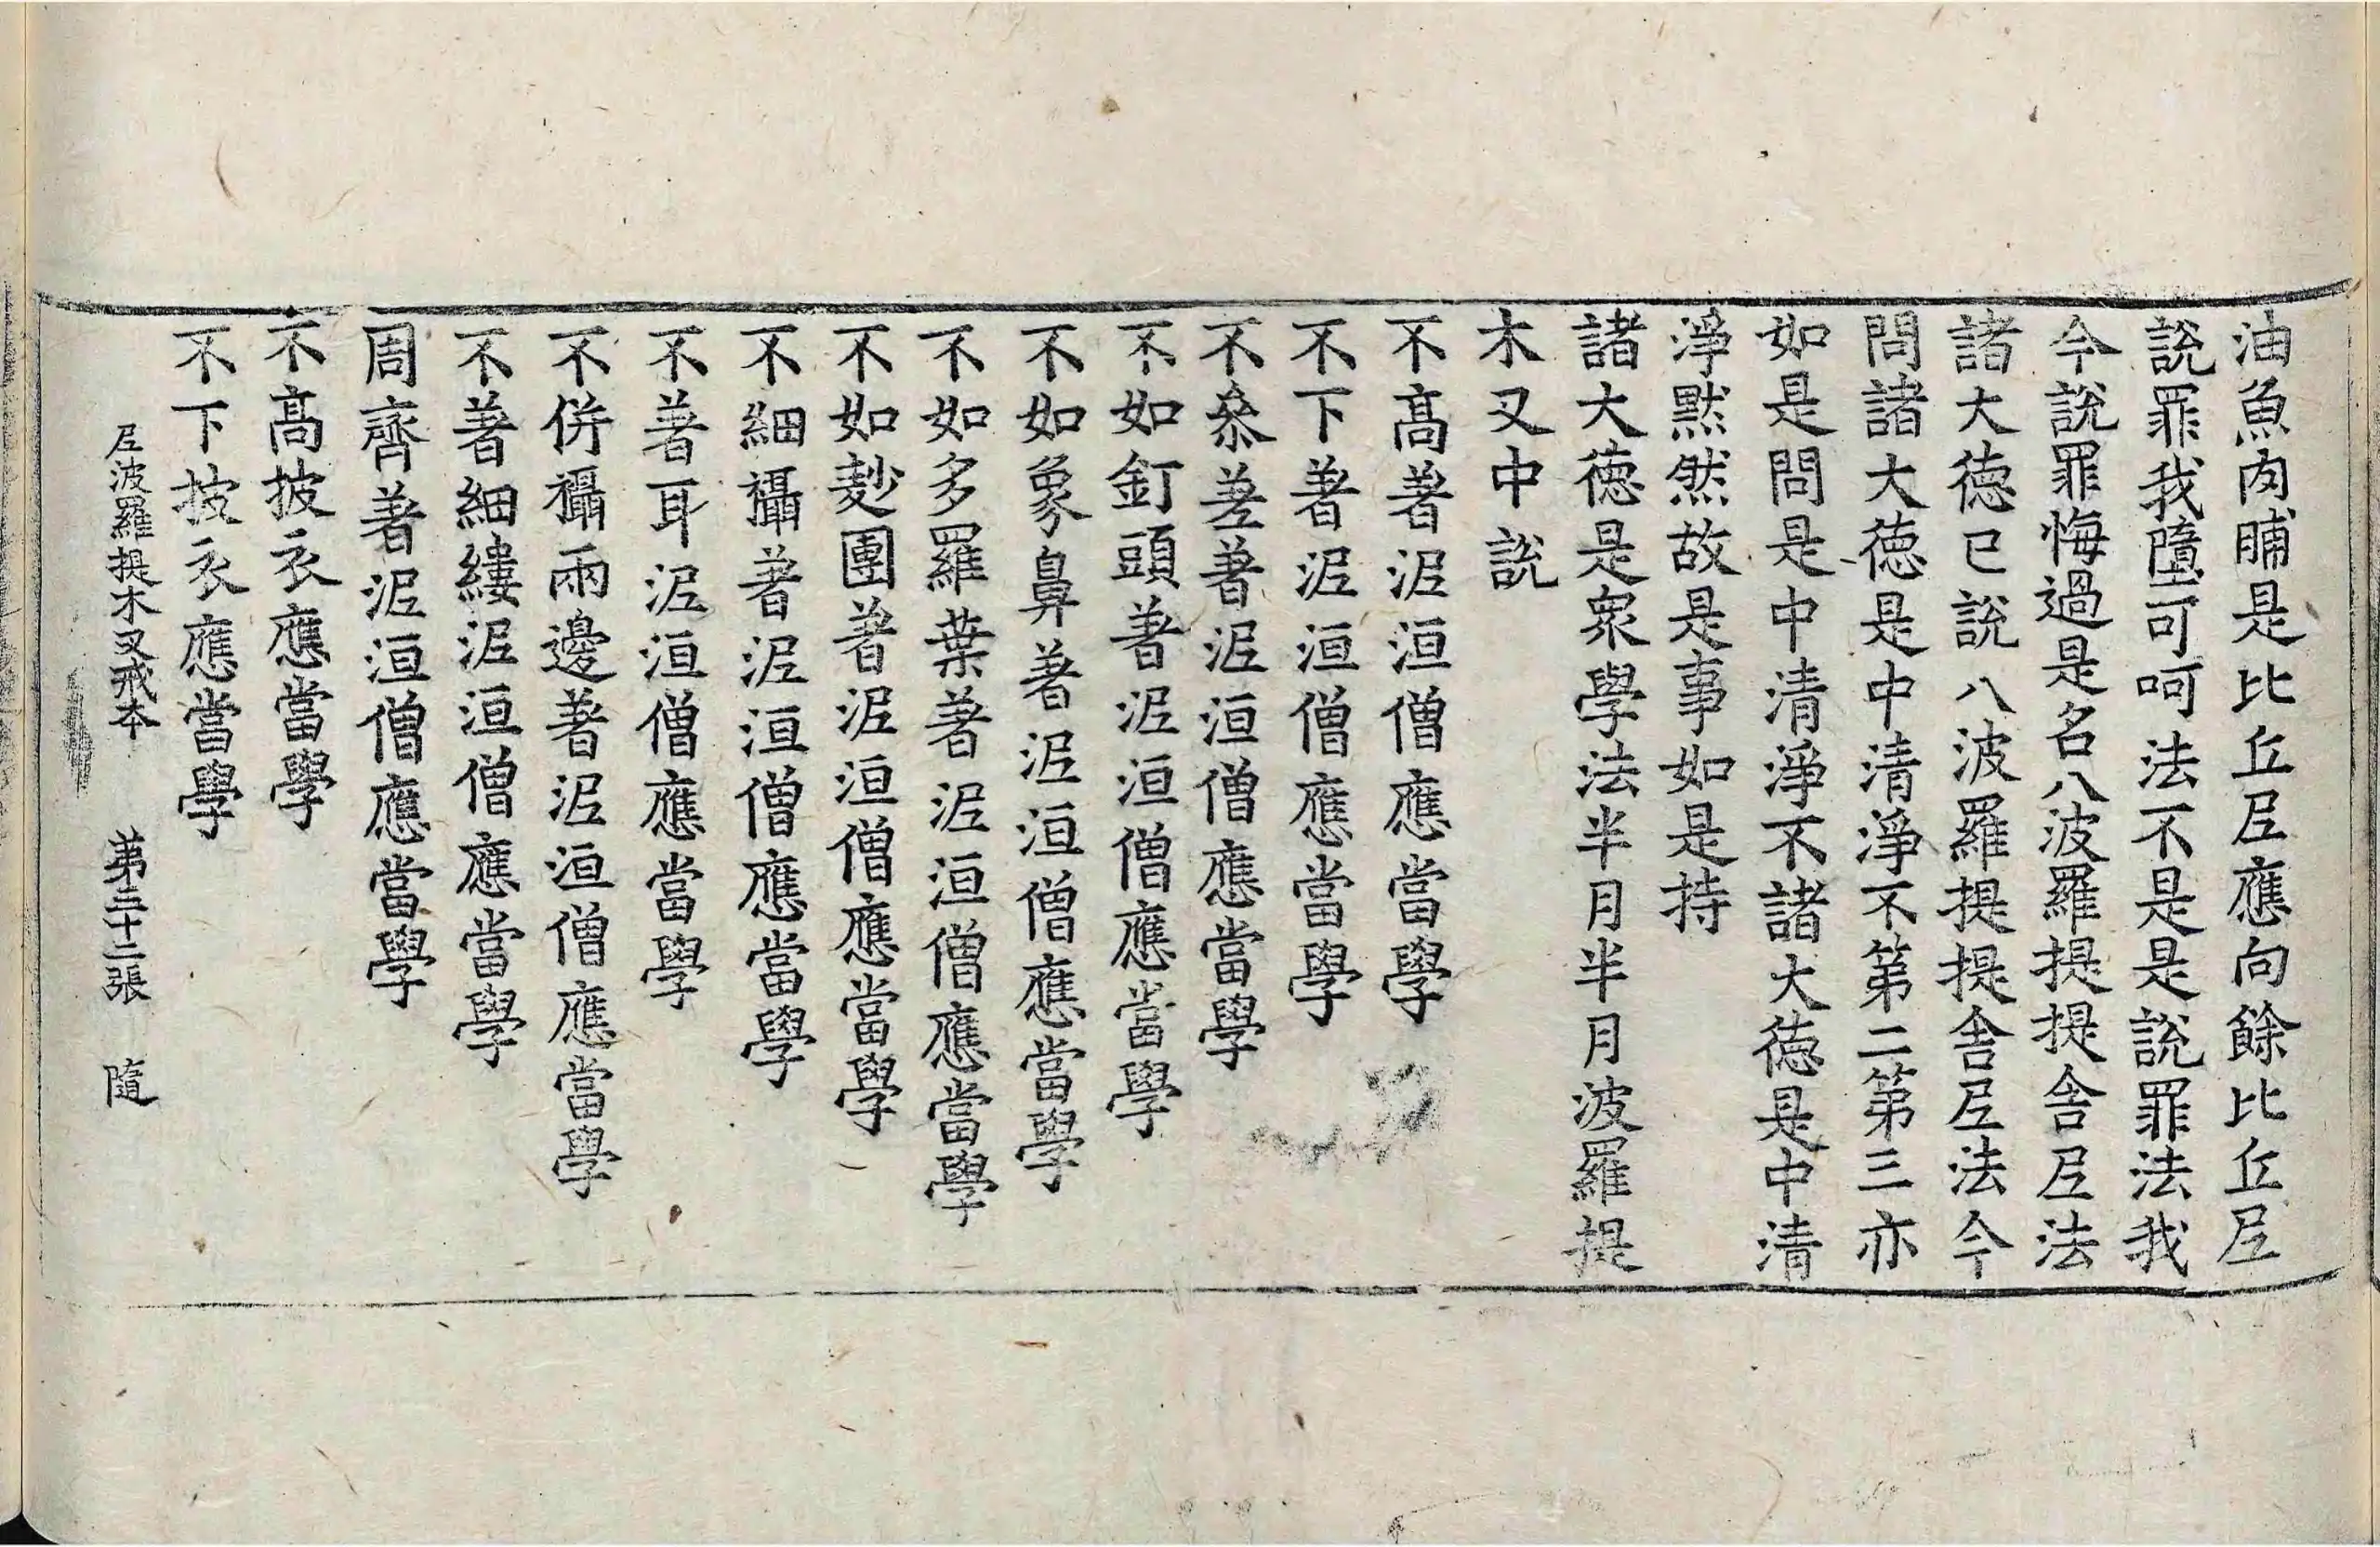 油魚肉脯是比丘尼應向餘比丘尼
說罪我墮可呵法不是是說罪法我
今說罪悔過是名八波羅提提舍尼法
諸大德已說八波羅提提舍尼法今
問諸大德是中清淨不第二第三亦
如是問是中清淨不諸大德是中清
淨默然故是事如是持
諸大德是衆學法半月半月波羅提
木叉中說
不高著泥洹僧應當學
不下著泥洹僧應當學
不叅差著泥洹僧應當學
不如釘頭著泥洹僧應當學
不如象鼻著泥洹僧應當學
不如多羅葉著泥洹僧應當學
不如麨團著泥洹僧應當學
不細襵著泥洹僧應當學
不著耳泥洹僧應當學
不併襵兩邊著泥洹僧應當學
不著細縷泥洹僧應當學
周齊著泥洹僧應當學
不高披衣應當學
不下披衣應當學
尼波羅提木叉戒本 第三十二張 隨